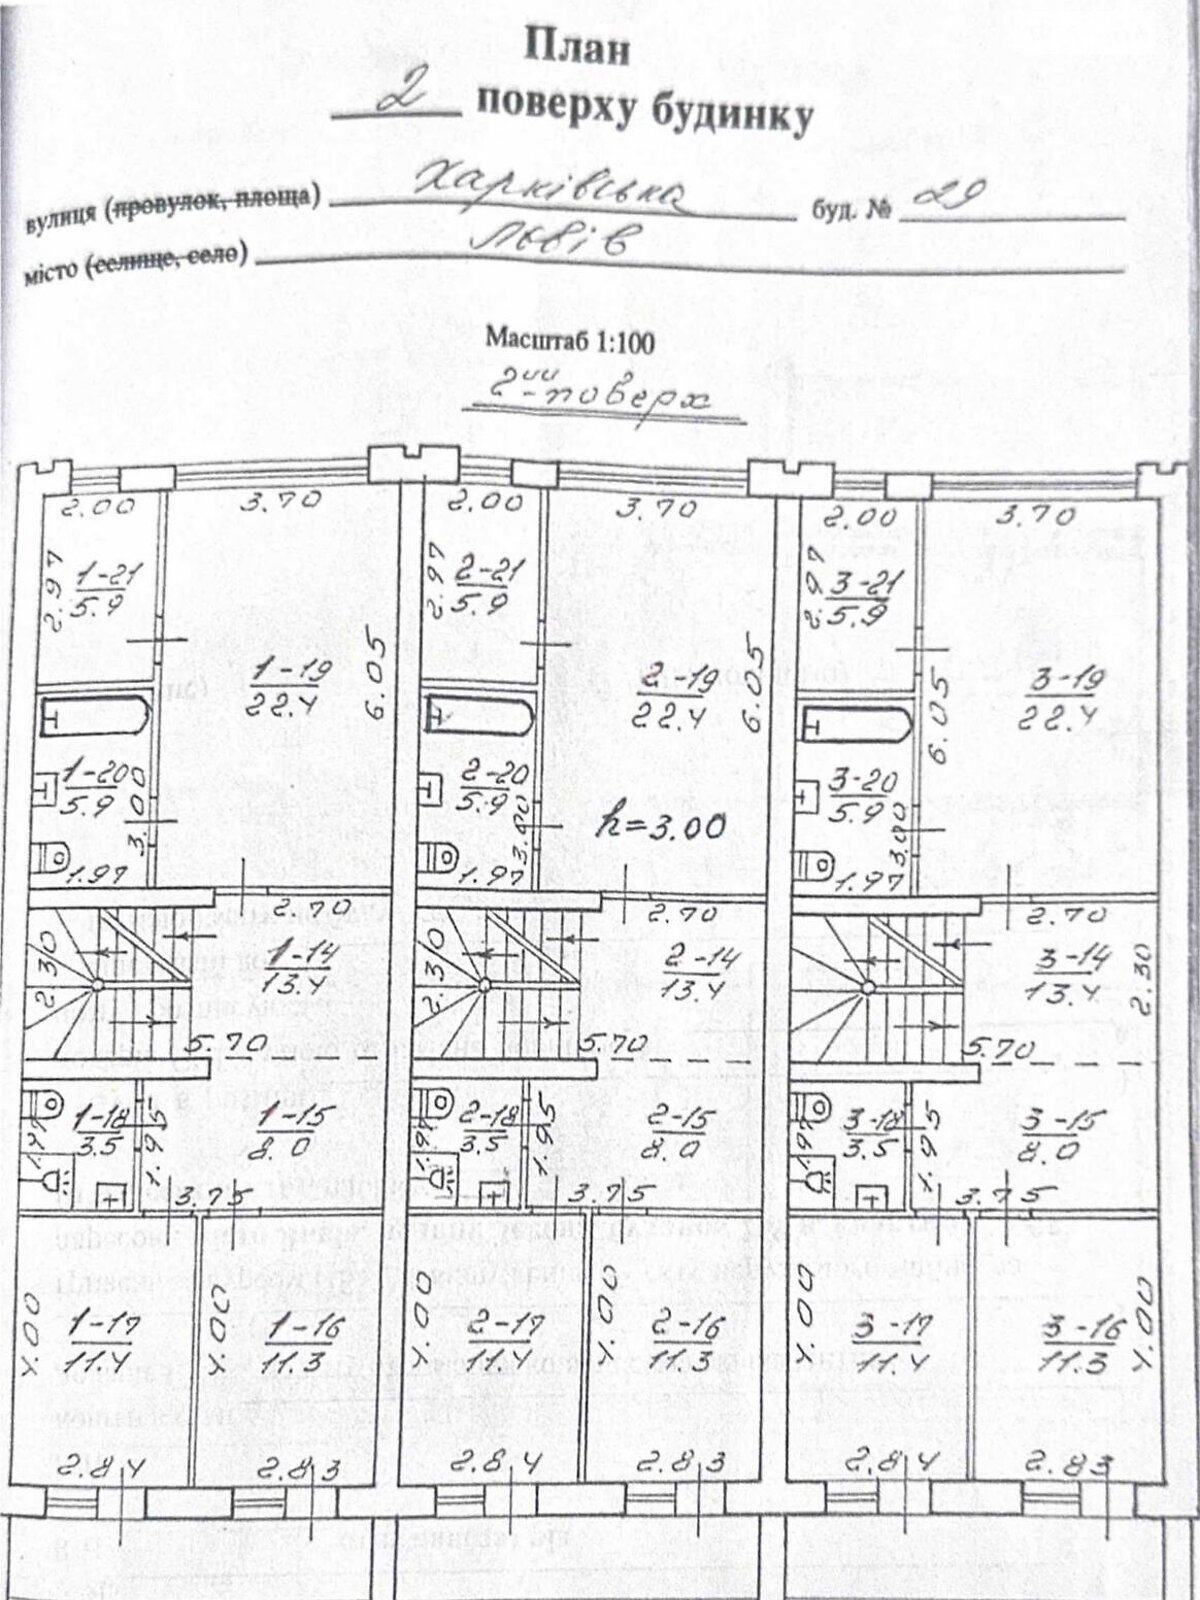 План
2 поверху будинку
вулиця (провулок, площа) Харківська буд. № 29
місто (селище, село) Львів
Масштаб 1:100
2ий-поверх
2.00 3.70 2.00 3.70 2.00 3.70
2.97 1-21 5.9 2.97 2-21 5.9 2.97 3-21 5.9
1-19 22.4 6.05 2-19 22.4 6.05 6.05 3-19 22.4
1-20 5.9 3.00 2-20 5.9 3.00 3-20 5.9 3.00
h=3.00
1.97 1.97 1.97
2.70 2.70 2.70
2.30 1-14 13.4 2.30 2-14 13.4 3-14 13.4 2.30
5.70 5.70 5.70
1-18 3.5 1.95 1-15 8.0 2-18 3.5 1.95 2-15 8.0 3-18 3.5 1.95 3-15 8.0
3.75 3.75 3.75
4.00 1-17 11.4 4.00 1-16 11.3 4.00 2-17 11.4 4.00 2-16 11.3 4.00 3-17 11.4 3-16 11.3 4.00
2.84 2.83 2.84 2.83 2.84 2.83